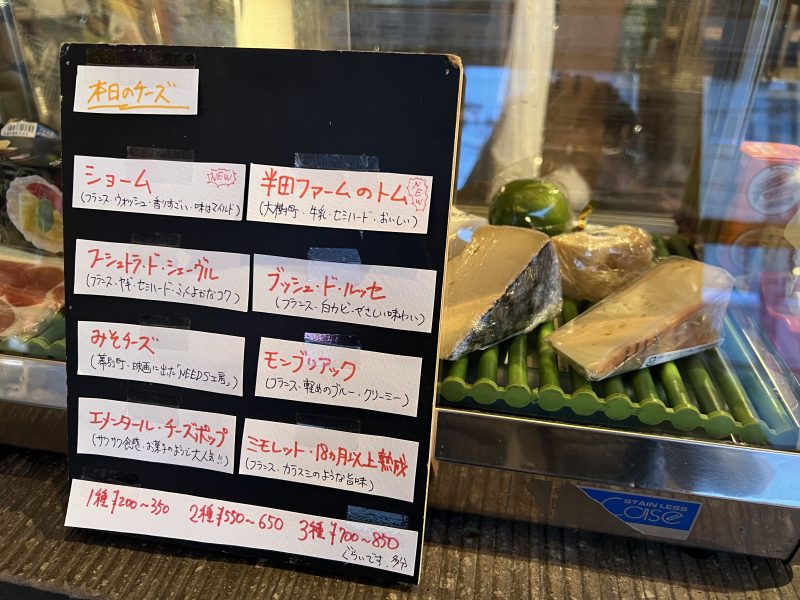 本日のチーズ
ショーム
NEW
(フランス・ウォッシュ・香りすごい・味はマイルド)
半田ファームのトム
NEW
(大樹町・牛乳・セミハード・おいしい)
ブーシュトラ・ド・シェーヴル
(フランス・ヤギ・セミハード・ふくよかなコク)
ブッシュ・ド・ルッセ
(フランス・白カビ・やさしい味わい)
みそチーズ
(幕別町・映画に出た「NEEDS工房」)
モンブリアック
(フランス・軽めのブルー・クリーミー)
エメンタール・チーズポップ
(サクサク食感・お菓子のようで大人気!!)
ミモレット・18ヵ月以上熟成
(フランス・カラスミのような旨味)
1種¥200~350 2種¥550~650 3種¥700~850
ぐらいです、多分
STAINLESS
Case